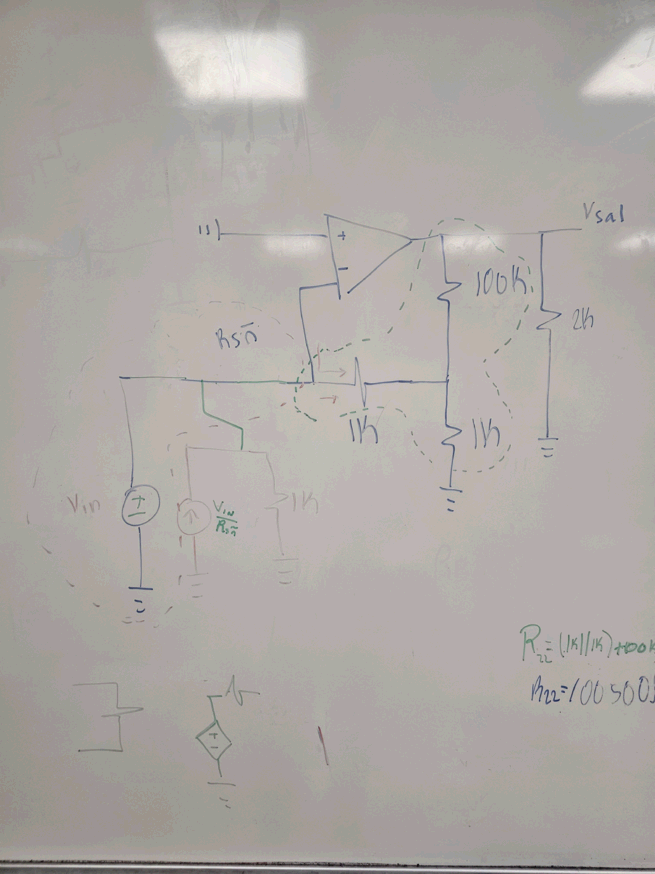 Vsal
+
-
100K
2K
1K
1K
Vin
+
-
Vin
1K
R22=(1K||1K)+100K
R22=100500
+
-